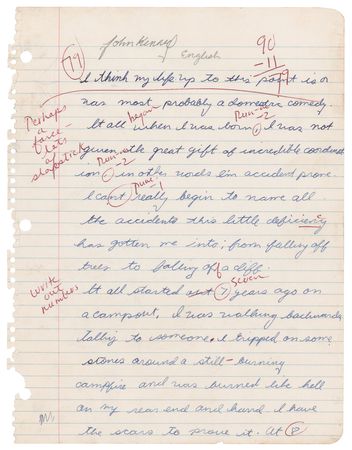 John Kenned
English
79
90
-11
79
I think my life up to this point is or
has most probably a domestic comedy.
Perhaps
a
farce
lots
of
slapstick
began Run-on
-2
It all when I was born, I was not
given the great gift of incredible coordinat
Run-on
-2
ion, in other words I'm accident prone.
Punc -1
I can't really begin to name all
the accidents this little deficiency
has gotten me into; from falling off
trees to falling off a cliff.
Seven
It all started 7 years ago on
Write
out
numbers
a campout, I was walking backwards
talking to someone, I tripped on some
stones around a still-burning
campfire and was burned like hell
on my rear end and hand. I have
the scars to prove it. At